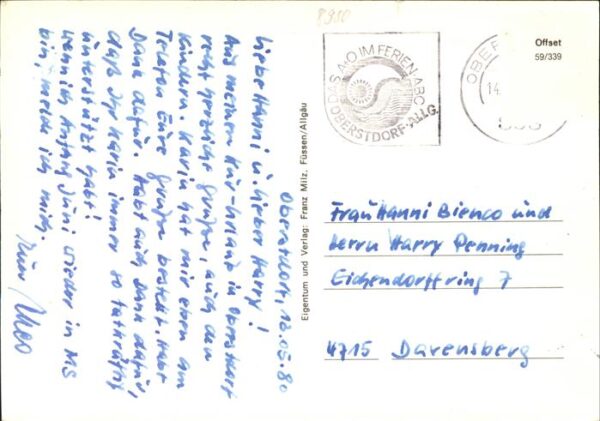 Oberstdorf, 12.05.80
Liebe Hanni u. lieber Harry!
Aus meinem Kur-Urlaub in Oberstdorf
recht herzliche Grüße, auch den
Kindern. Karin hat mir eben am
Telefon Eure Grüße bestellt. Habt
Dank dafür. Habt auch Dank dafür,
daß Ihr Karin immer so tatkräftig
unterstützt habt!
Wenn ich Anfang Juni wieder in MS
bin, melde ich mich.
8980
DAS A+O IM FERIEN-ABC
OBERSTDORF-ALLG.
OBER
14.
Offset
59/339
Eigentum und Verlag: Franz Milz, Füssen/Allgäu
Frau Hanni Bienco und
Herrn Harry Penning
Eichendorffring 7
4715 Davensberg